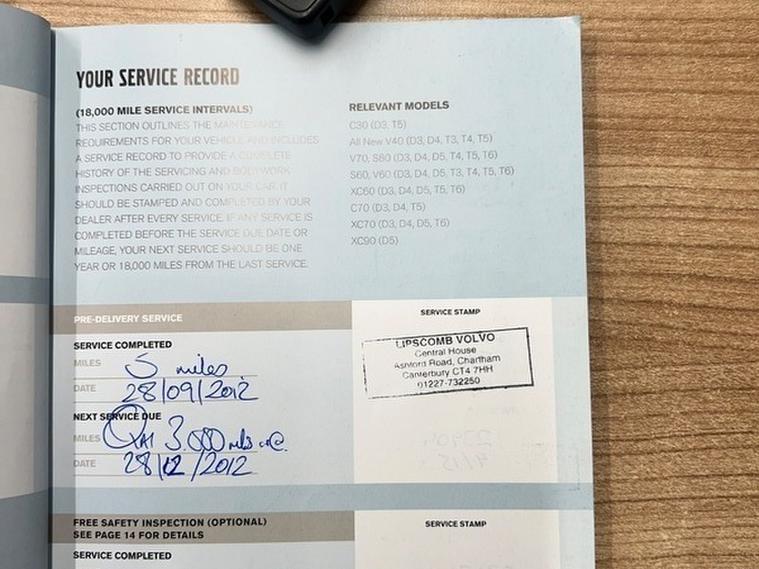 YOUR SERVICE RECORD
(18,000 MILE SERVICE INTERVALS)
THIS SECTION OUTLINES THE MAINTENANCE
REQUIREMENTS FOR YOUR VEHICLE AND INCLUDES
A SERVICE RECORD TO PROVIDE A COMPLETE
HISTORY OF THE SERVICING AND BODYWORK
INSPECTIONS CARRIED OUT ON YOUR CAR. IT
SHOULD BE STAMPED AND COMPLETED BY YOUR
DEALER AFTER EVERY SERVICE. IF ANY SERVICE IS
COMPLETED BEFORE THE SERVICE DUE DATE OR
MILEAGE, YOUR NEXT SERVICE SHOULD BE ONE
YEAR OR 18,000 MILES FROM THE LAST SERVICE.
RELEVANT MODELS
C30 (D3, T5)
All New V40 (D3, D4, T3, T4, T5)
V70, S80 (D3, D4, D5, T4, T5, T6)
S60, V60 (D3, D4, D5, T3, T4, T5, T6)
XC60 (D3, D4, D5, T5, T6)
C70 (D3, D4, T5)
XC70 (D3, D4, D5, T6)
XC90 (D5)
PRE-DELIVERY SERVICE
SERVICE COMPLETED
MILES 5 miles
DATE 28/09/2012
NEXT SERVICE DUE
MILES 3,000
DATE 28/12/2012
SERVICE STAMP
LIPSCOMB VOLVO
Central House
Ashford Road, Chartham
Canterbury CT4 7HH
01227-732250
FREE SAFETY INSPECTION (OPTIONAL)
SEE PAGE 14 FOR DETAILS
SERVICE COMPLETED
SERVICE STAMP